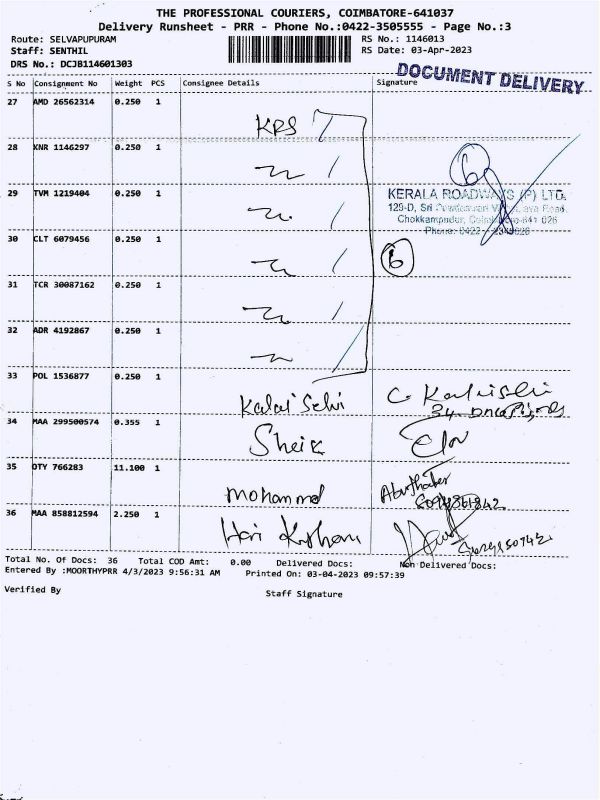 THE PROFESSIONAL COURIERS, COIMBATORE-641037
Delivery Runsheet - PRR - Phone No.:0422-3505555 - Page No.:3
Route: SELVAPUPURAM
RS No.: 1146013
Staff: SENTHIL
RS Date: 03-Apr-2023
DRS No.: DCJB114601303
DOCUMENT DELIVERY
S No Consignment No Weight PCS Consignee Details Signature
27 AMD 26562314 0.250 1
KRS
28 KNR 1146297 0.250 1
6
29 TVM 1219404 0.250 1
KERALA ROADWAYS (P) LTD.
Chokkampudur,
30 CLT 6079456 0.250 1
6
31 TCR 30087162 0.250 1
32 ADR 4192867 0.250 1
33 POL 1536877 0.250 1
Kalai Selvi
34 MAA 299500574 0.355 1
Sheik
35 OTY 766283 11.100 1
Mohammd
36 MAA 858812594 2.250 1
Hari
Total No. Of Docs: 36 Total COD Amt: 0.00 Delivered Docs: Non Delivered Docs:
Entered By :MOORTHYPRR 4/3/2023 9:56:31 AM Printed On: 03-04-2023 09:57:39
Verified By Staff Signature